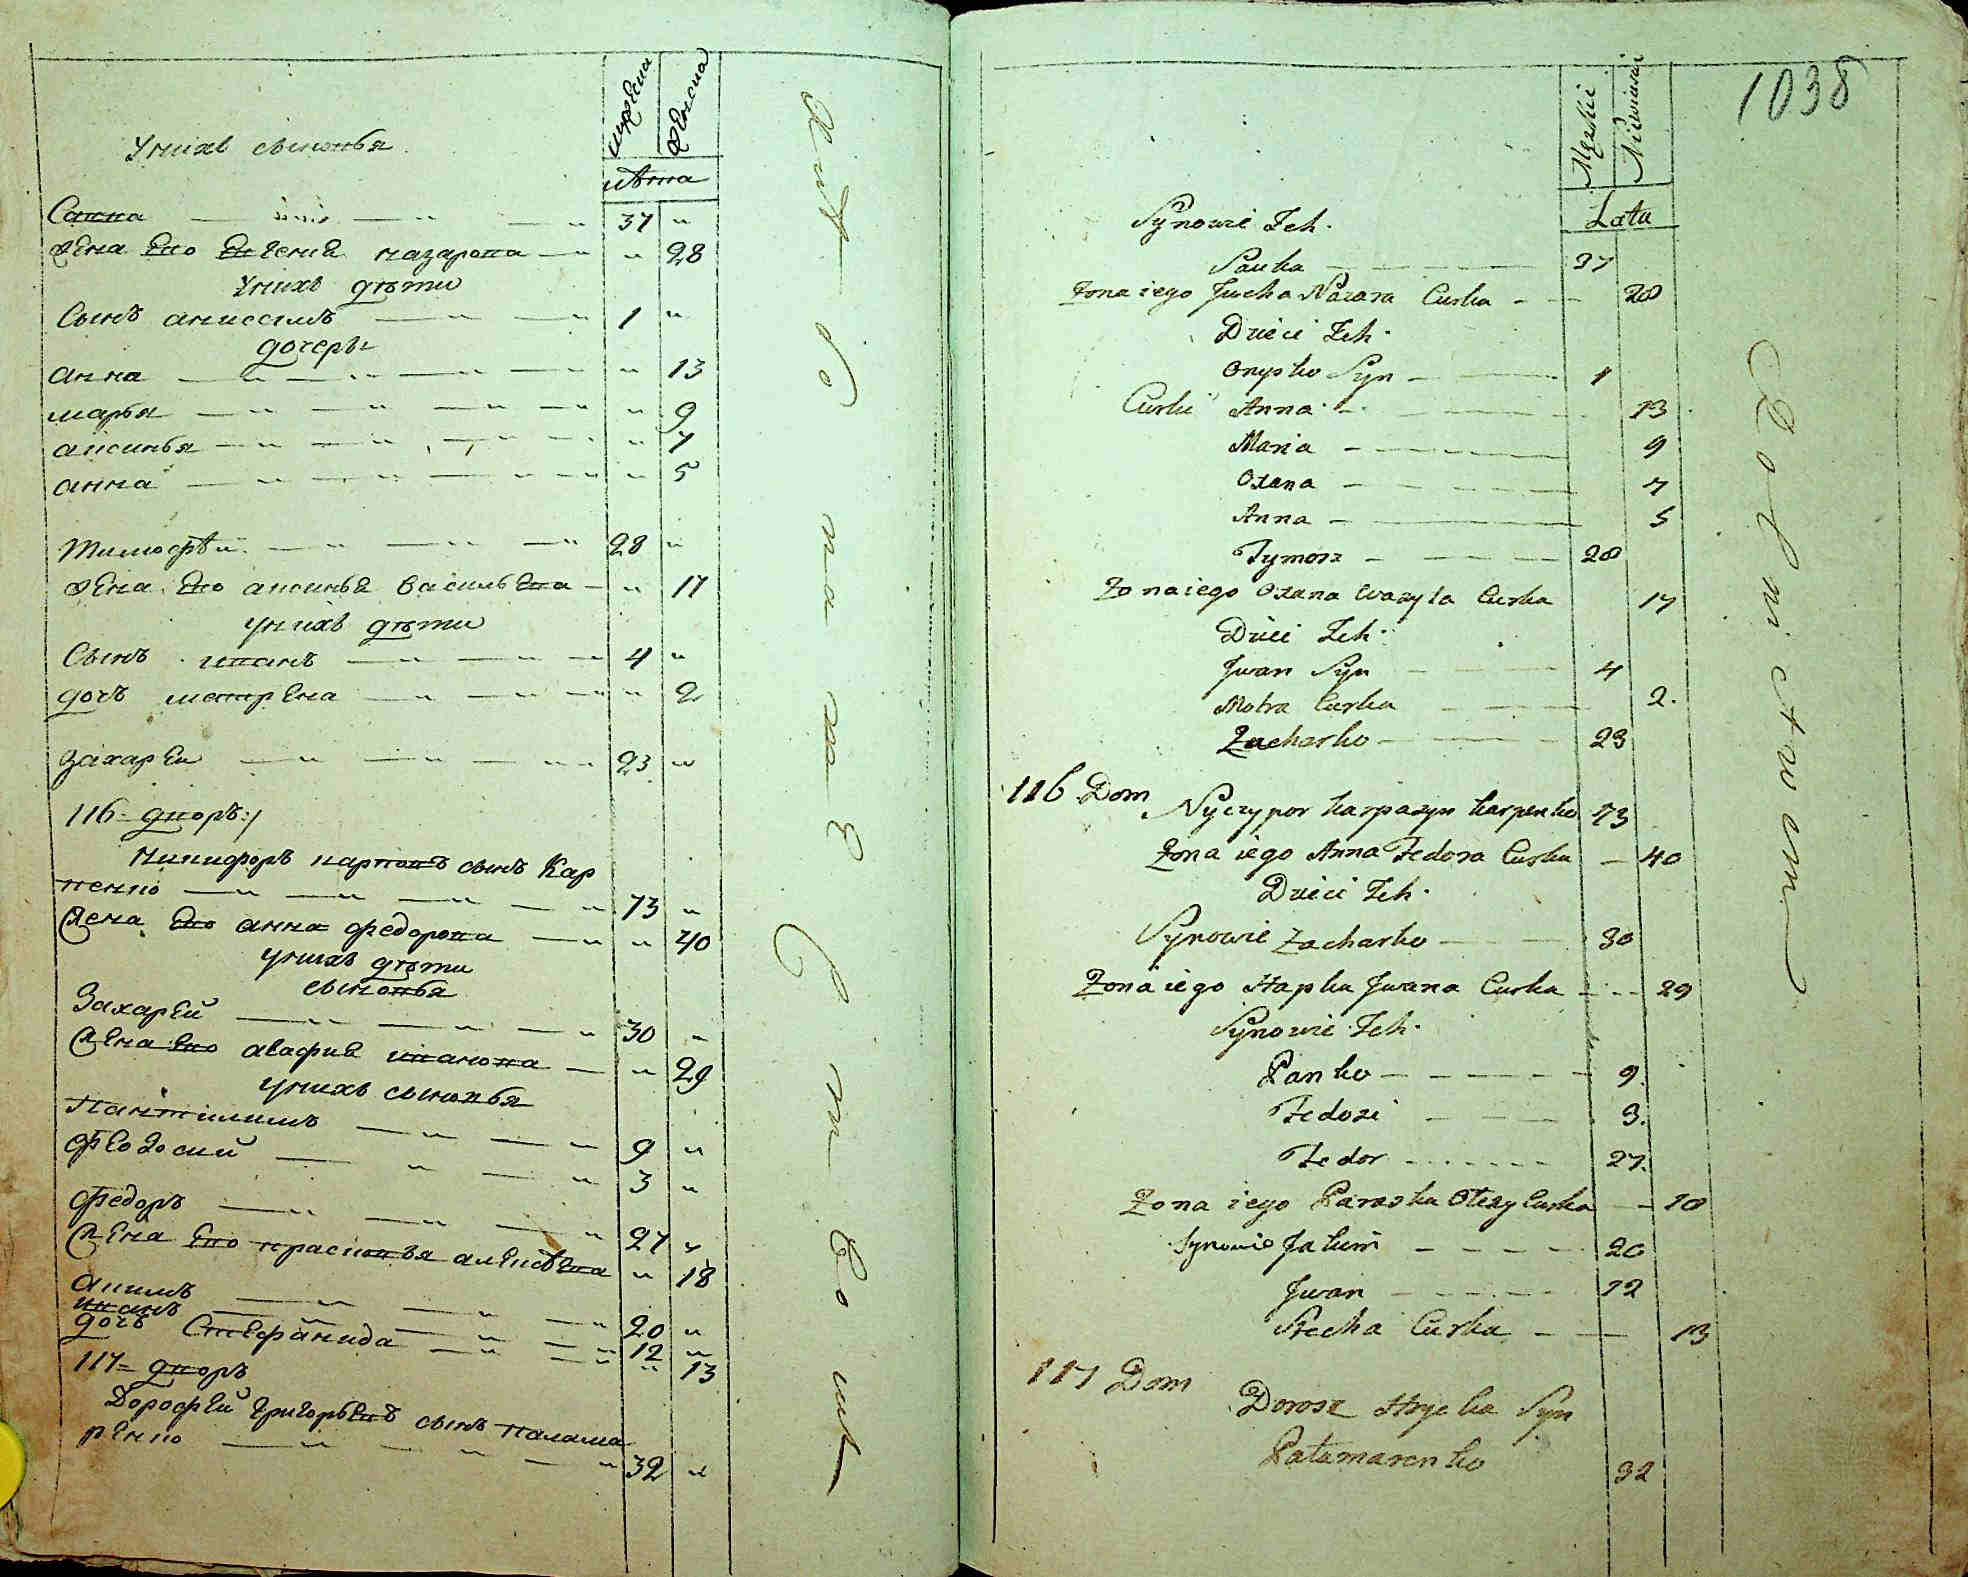 мужеска
женска
лѣта
У нихъ сыновья
Савва 37 "
жена ево Евгениа назарова " 28
У нихъ дѣти
Сынъ анисимъ 1 "
дочеры
анна " 13
марья " 9
аксинья " 7
анна " 5
тимофѣй 28 "
жена ево аксинья васильева " 17
у нихъ дѣти
Сынъ иванъ 4 "
дочъ матрена " 2
захарей 23 "
116 = дворъ:/
никифоръ карповъ сынъ Кар
пенко 73 "
жена ево анна федорова " 40
у нихъ дѣти
сыновья
Захарей 30 "
жена ево агафия иванова " 29
у нихъ сыновья
Пантилимъ 9 "
Феодосий 3 "
Федоръ 27 "
жена ево прасковья алексѣева " 18
акимъ 20 "
иванъ 12 "
дочъ Стефанида " 13
117 = дворъ
Дорофей григорьевъ сынъ палама
ренко 32 "
1038
Męzkie
Niewieskie
Lata
Synowie Ich.
Sawka 37
Żona iego Jucha Nazara Curka 28
Dzieci Ich.
Onysko Syn 1
Curki Anna 13
Maria 9
Oxana 7
Anna 5
Tymosz 28
Żona iego Oxana Wasyla Curka 17
Dzieci Ich.
Jwan Syn 4
Motra Curka 2.
Zacharko 23
116 Dom
Nyczypor Karpazyn Karpenko 73
Żona iego Anna Fedora Curka 40
Dzieci Ich.
Synowie Zacharko 30
Żona iego Hapka Jwana Curka 29
Synowie Ich.
Panko 9.
Fedosi 3.
Fedor 27.
Żona iego Paraska Olexy Curka 18
Synowie Jakim 20
Jwan 12
Stecha Curka 13
117 Dom
Dorosz Hrycka Syn
Pałamarenko 32